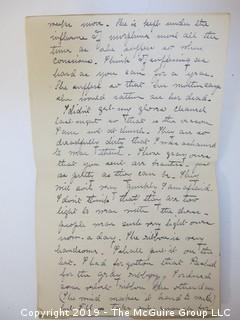 more. She is kept under the
influence of morphine most all the
time as she suffers so when
conscious. Think of suffering as
hard as you can for a year.
She suffers so that her mother says
she would rather see her dead.
I didn't get my gloves cleaned
last night so that is the reason
I am not at church. They are so
dreadfully dirty that I was ashamed
to wear them. These gray ones
that you sent are beauties
as pretty as they can be. They
will soil very quickly I am afraid.
I don't think that they are too
light to wear with the dress
people wear such very light ones
now-a-day. The ribbon is very
handsome. I shall put it on the
hat. I had forgotten that
for the gray I ordered
some velvet ribbon the other day
Copyright 2019 - The McGuire Group LLC